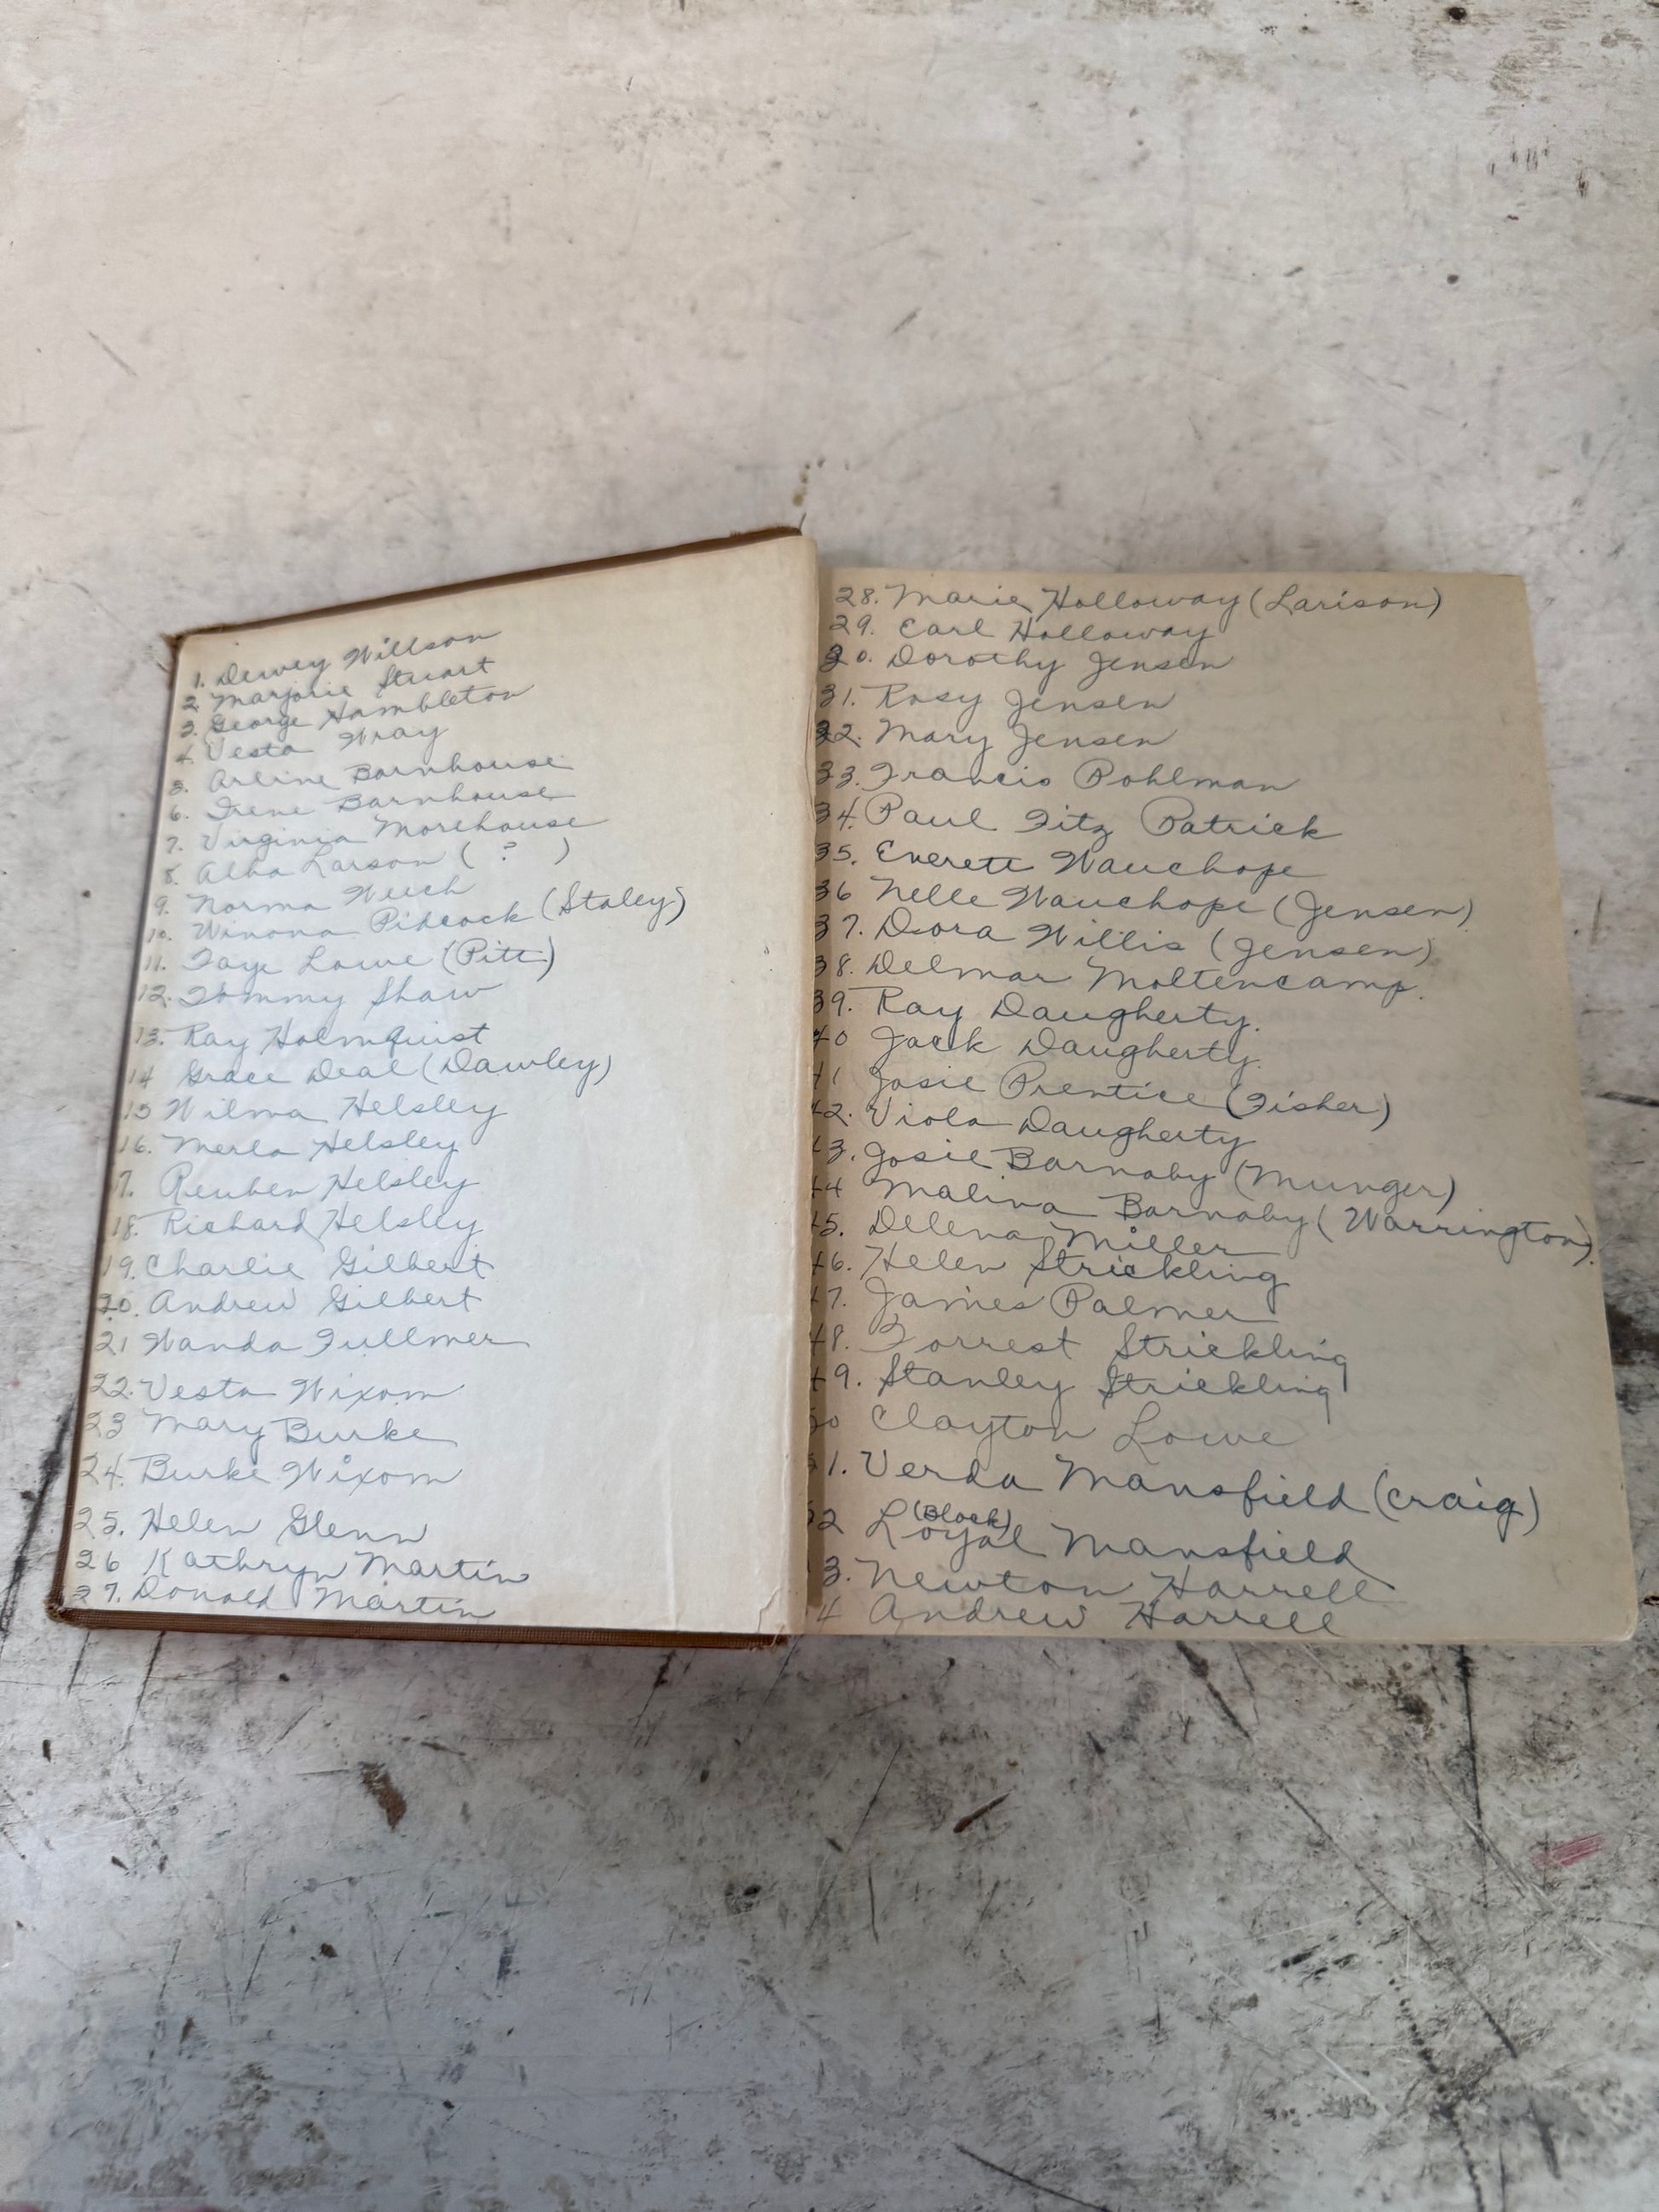 1. Dewey Willson
2. Marjorie Stuart
3. George Hambleton
4. Vesta Wray
5. Arline Barnhouse
6. Irene Barnhouse
7. Virginia Morehouse
8. Alha Larson ( ? )
9. Norma Weech
10. Winona Pidcock (Staley)
11. Faye Lowe (Pitt)
12. Tommy Shaw
13. Ray Holmquist
14 Grace Deal (Dawley)
15 Wilma Helsley
16. Merla Helsley
17. Reuben Helsley
18. Richard Helsley
19. Charlie Gilbert
20. Andrew Gilbert
21 Wanda Fullmer
22. Vesta Wixom
23 Mary Burke
24. Burke Wixom
25. Helen Glenn
26 Kathryn Martin
27. Donald Martin
28. Marie Holloway (Larison)
29. Carl Holloway
30. Dorothy Jensen
31. Rosy Jensen
32. Mary Jensen
33. Francis Pohlman
34. Paul Fitz Patrick
35. Everett Wauchope
36 Nelle Wauchope (Jensen)
37. Dora Willis (Jensen)
38. Delmar Moltencamp.
39. Ray Daugherty.
40 Jack Daugherty.
41 Josie Prentice (Fisher)
42. Viola Daugherty
43. Josie Barnaby (Munger)
44 Malina Barnaby (Warrington).
45. Delena Miller
46. Helen Strickling
47. James Palmer
48. Forrest Strickling
49. Stanley Strickling
50 Clayton Lowe
51. Verda Mansfield (Craig)
(Block)
52 Loyal Mansfield
3. Newton Harrell
4 Andrew Harrell